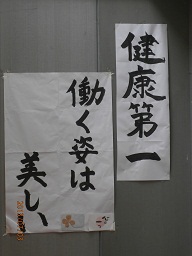 健康第一
働く姿は
美しい